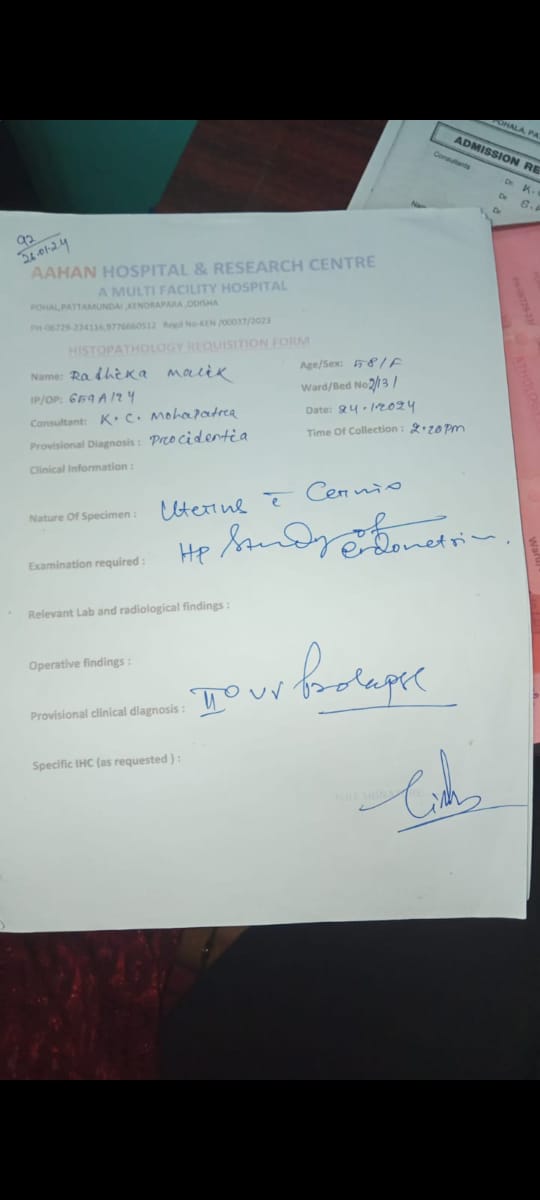 POHALA, PA
ADMISSION RE
Consultants
Dr. K.
Dr.
Dr
92
26.01.24
AAHAN HOSPITAL & RESEARCH CENTRE
A MULTI FACILITY HOSPITAL
POHAL,PATTAMUNDAI ,KENDRAPARA ,ODISHA
PH-06729-234116,9776660512 Regd No-KEN /00037/2023
HISTOPATHOLOGY REQUISITION FORM
Name: Radheka Malik Age/Sex: 58/F
IP/OP: 659A/24 Ward/Bed No 2/13/
Consultant: K. C. Mohapatra Date: 24.1.2024
Provisional Diagnosis : Procidentia Time Of Collection : 2.20pm
Clinical Information :
Nature Of Specimen : Uterine c̄ Cervix
Examination required : HP Study of endometrium.
Relevant Lab and radiological findings :
Operative findings :
Provisional clinical diagnosis : II° UV Prolapse
Specific IHC (as requested ) :